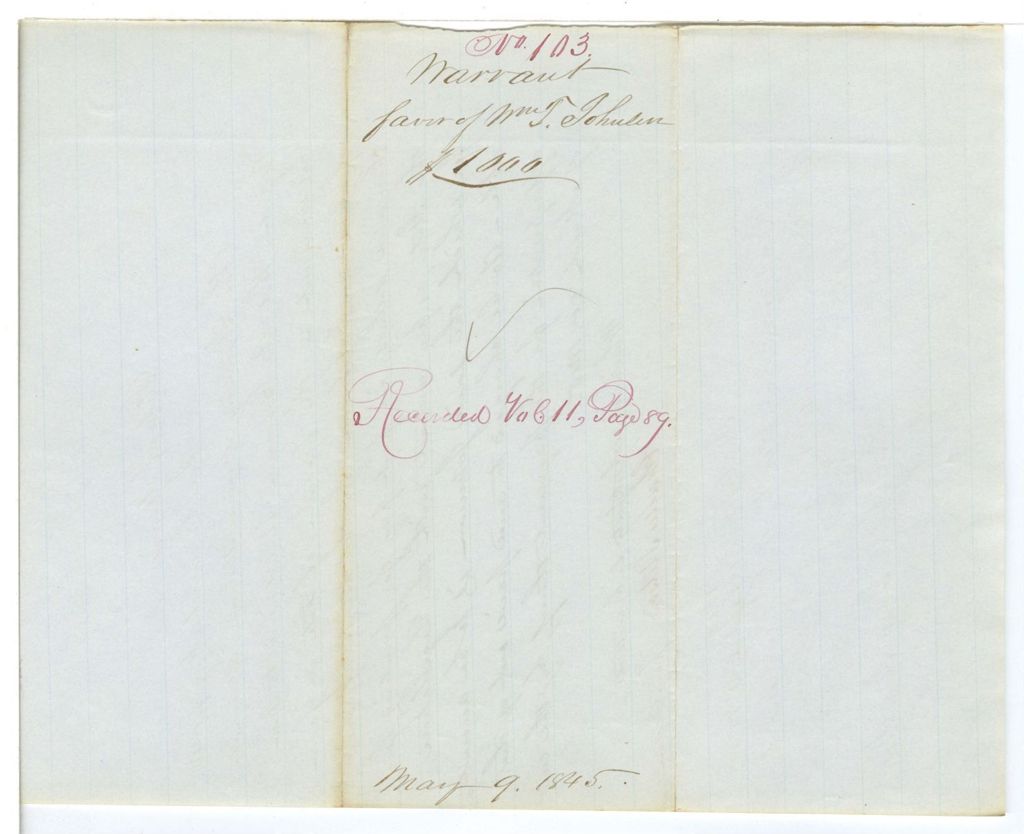 No. 103.
Warrant
favor of Wm T. Johnson
$1000
Recorded Vol. 11, Page 89.
May 9. 1845.